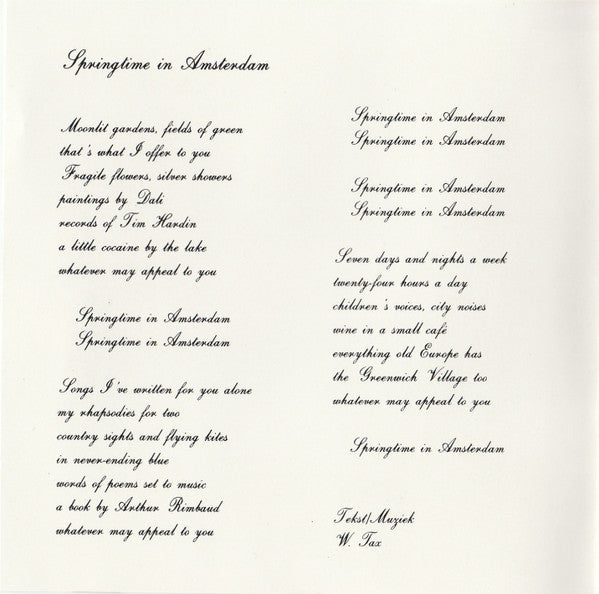 Springtime in Amsterdam
Moonlit gardens, fields of green
that's what I offer to you
Fragile flowers, silver showers
paintings by Dali
records of Tim Hardin
a little cocaine by the lake
whatever may appeal to you
Springtime in Amsterdam
Springtime in Amsterdam
Songs I've written for you alone
my rhapsodies for two
country sights and flying kites
in never-ending blue
words of poems set to music
a book by Arthur Rimbaud
whatever may appeal to you
Springtime in Amsterdam
Springtime in Amsterdam
Springtime in Amsterdam
Springtime in Amsterdam
Seven days and nights a week
twenty-four hours a day
children's voices, city noises
wine in a small café
everything old Europe has
the Greenwich Village too
whatever may appeal to you
Springtime in Amsterdam
Tekst/Muziek
W. Tax